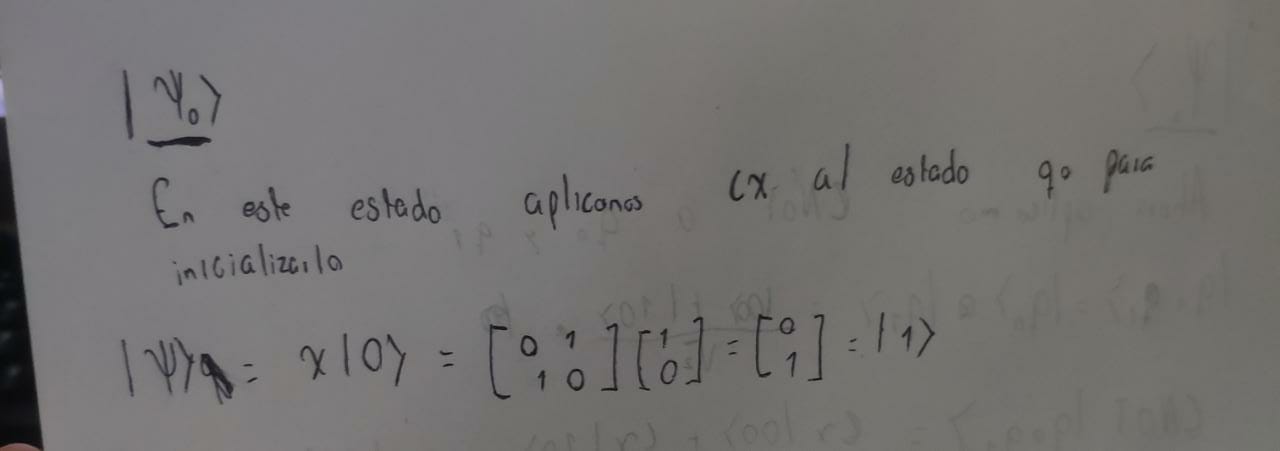 |Ψ₀⟩
En este estado aplicanos Cx al estado q₀ para
inicializarlo
|Ψ⟩ = x|0⟩ = [0 1 1 0] [1 0] = [0 1] = |1⟩